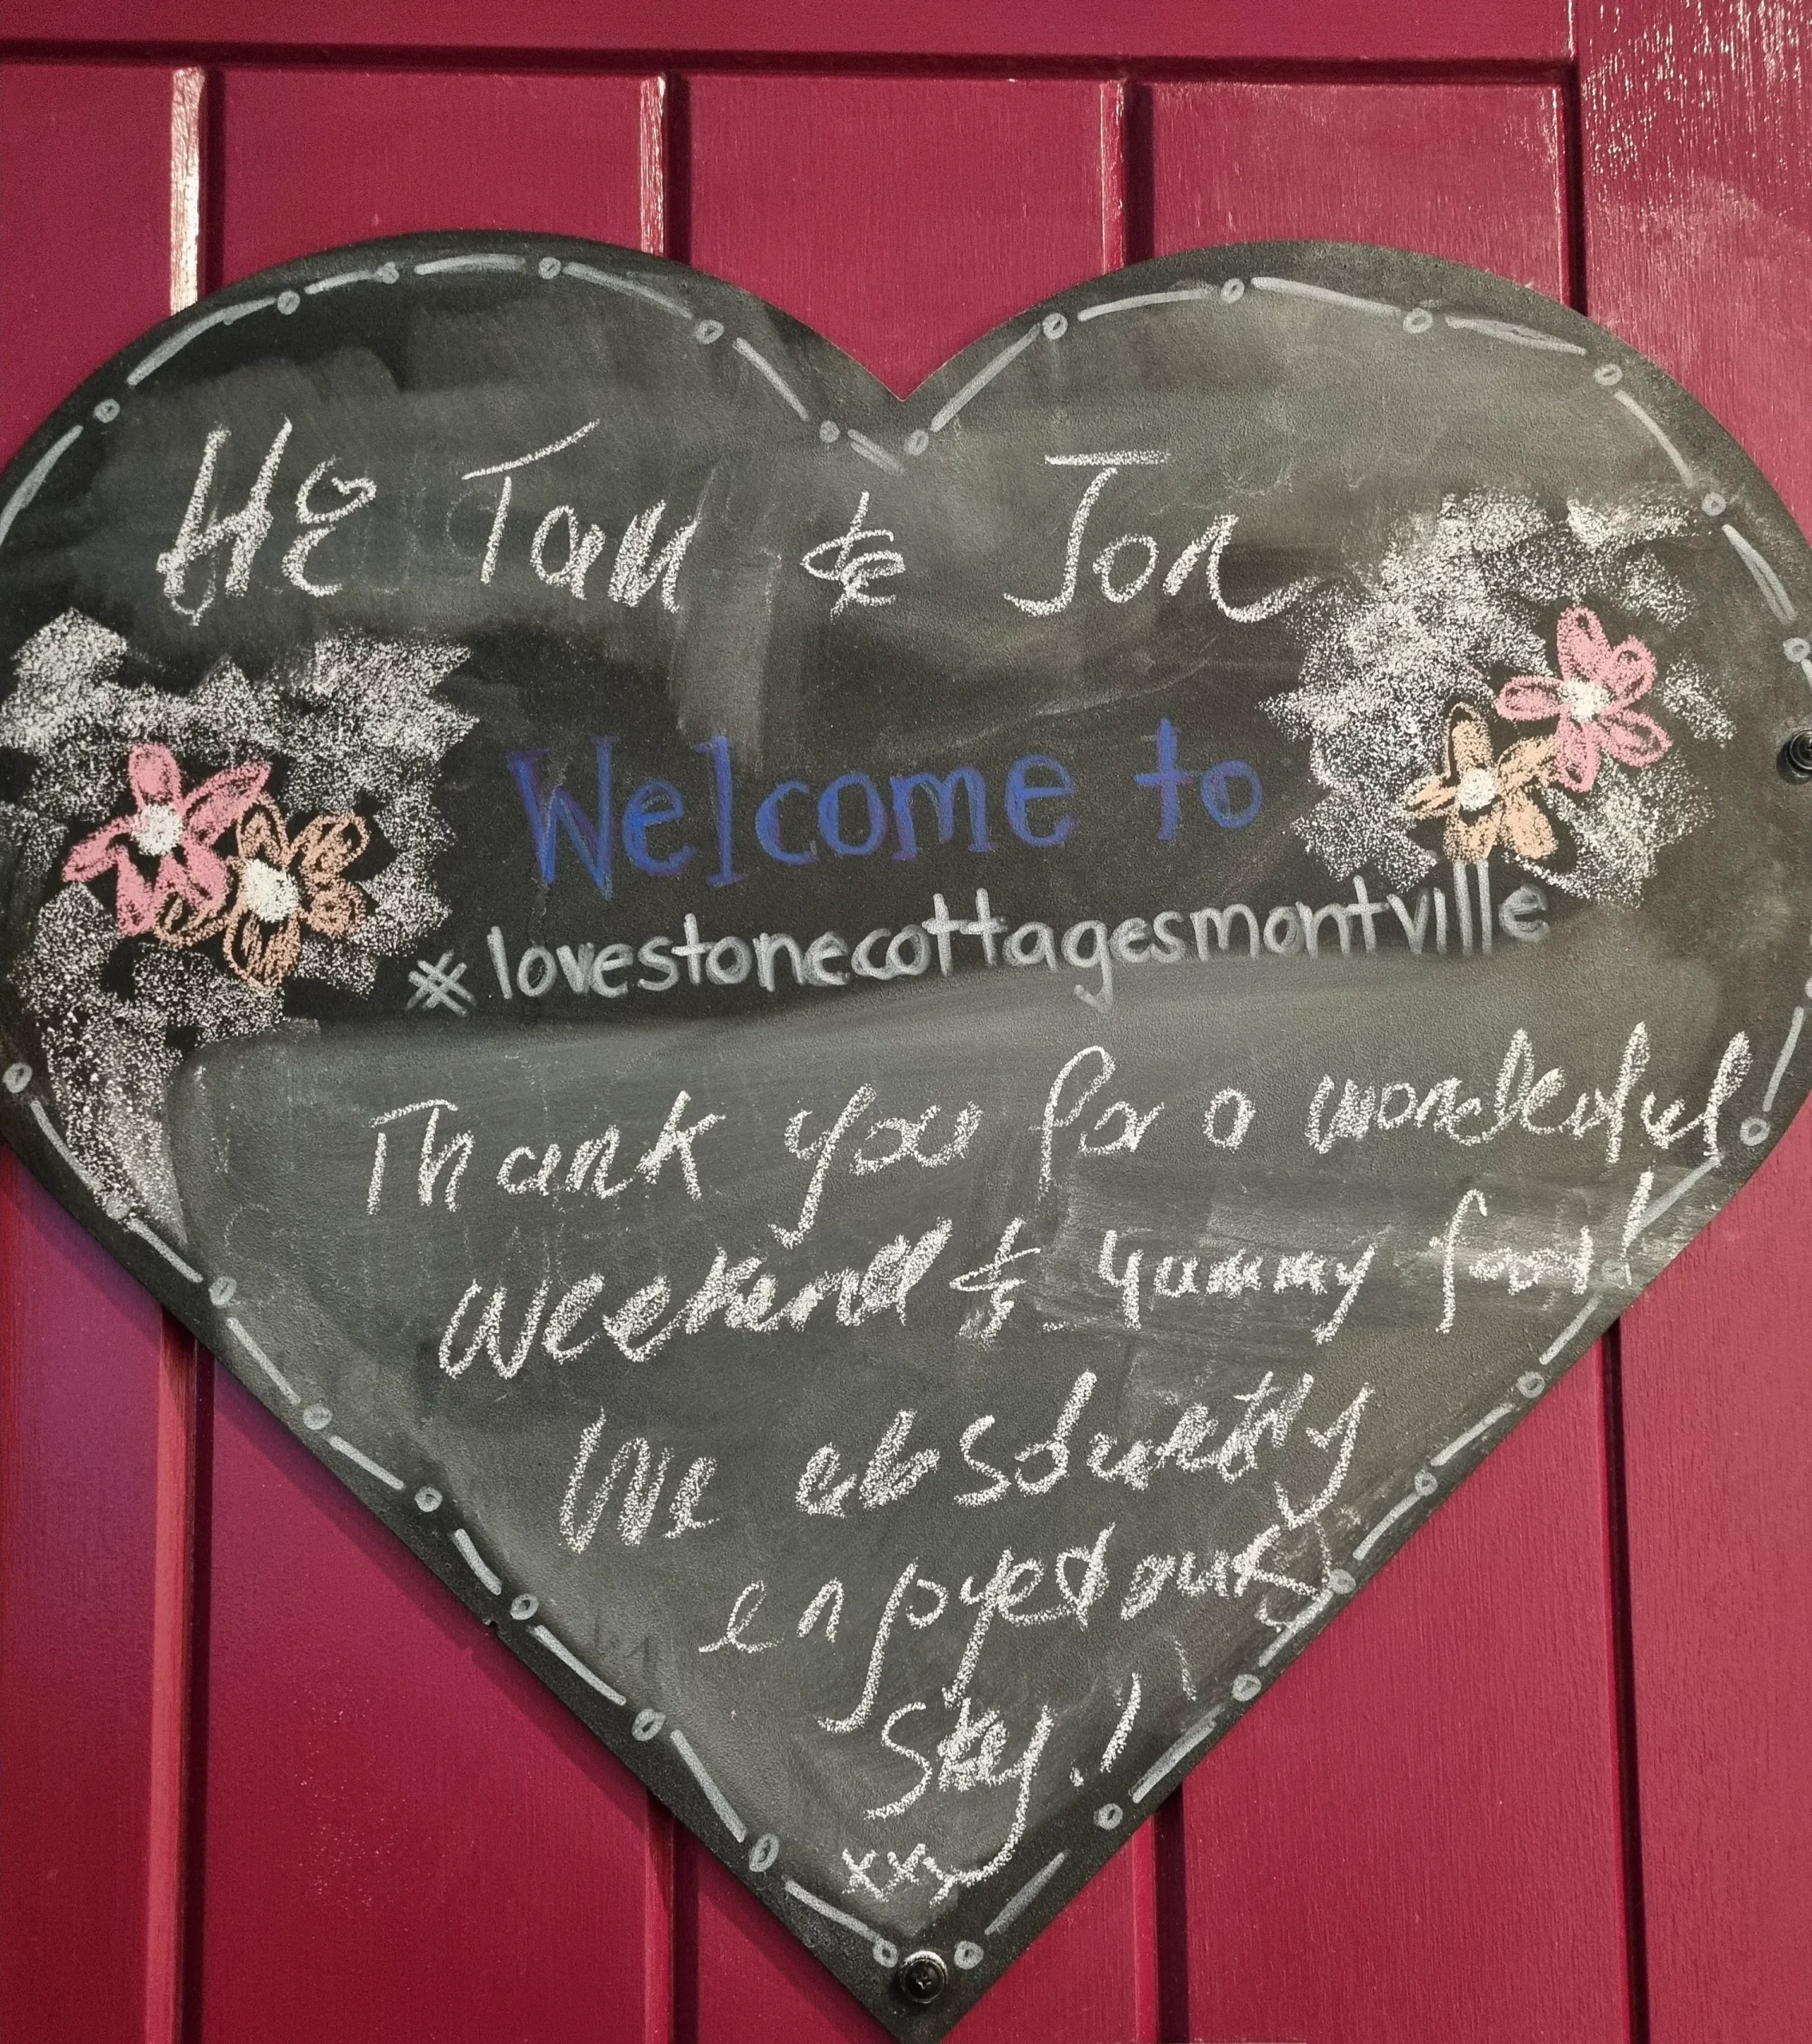 Hi Tam & Jon
Welcome to
#lovestonecottagesmontville
Thank you for a wonderful
weekend & yummy food!
We absolutely
enjoyed our
Stay!!
xxx